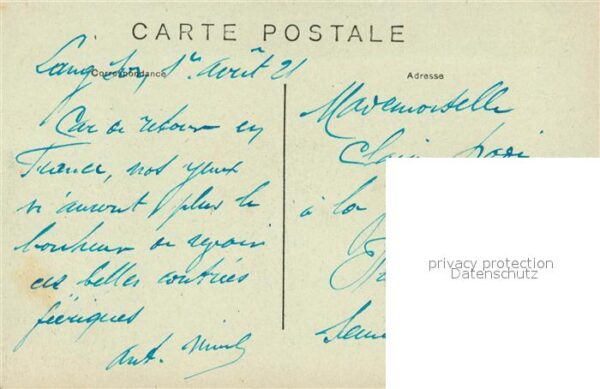 CARTE POSTALE
Correspondance
Adresse
août 21
Car de retour en
France, nos yeux
n'auront plus le
bonheur de revoir
ces belles contrées
féeriques
Ant.
Mademoiselle
à la
privacy protection
Datenschutz